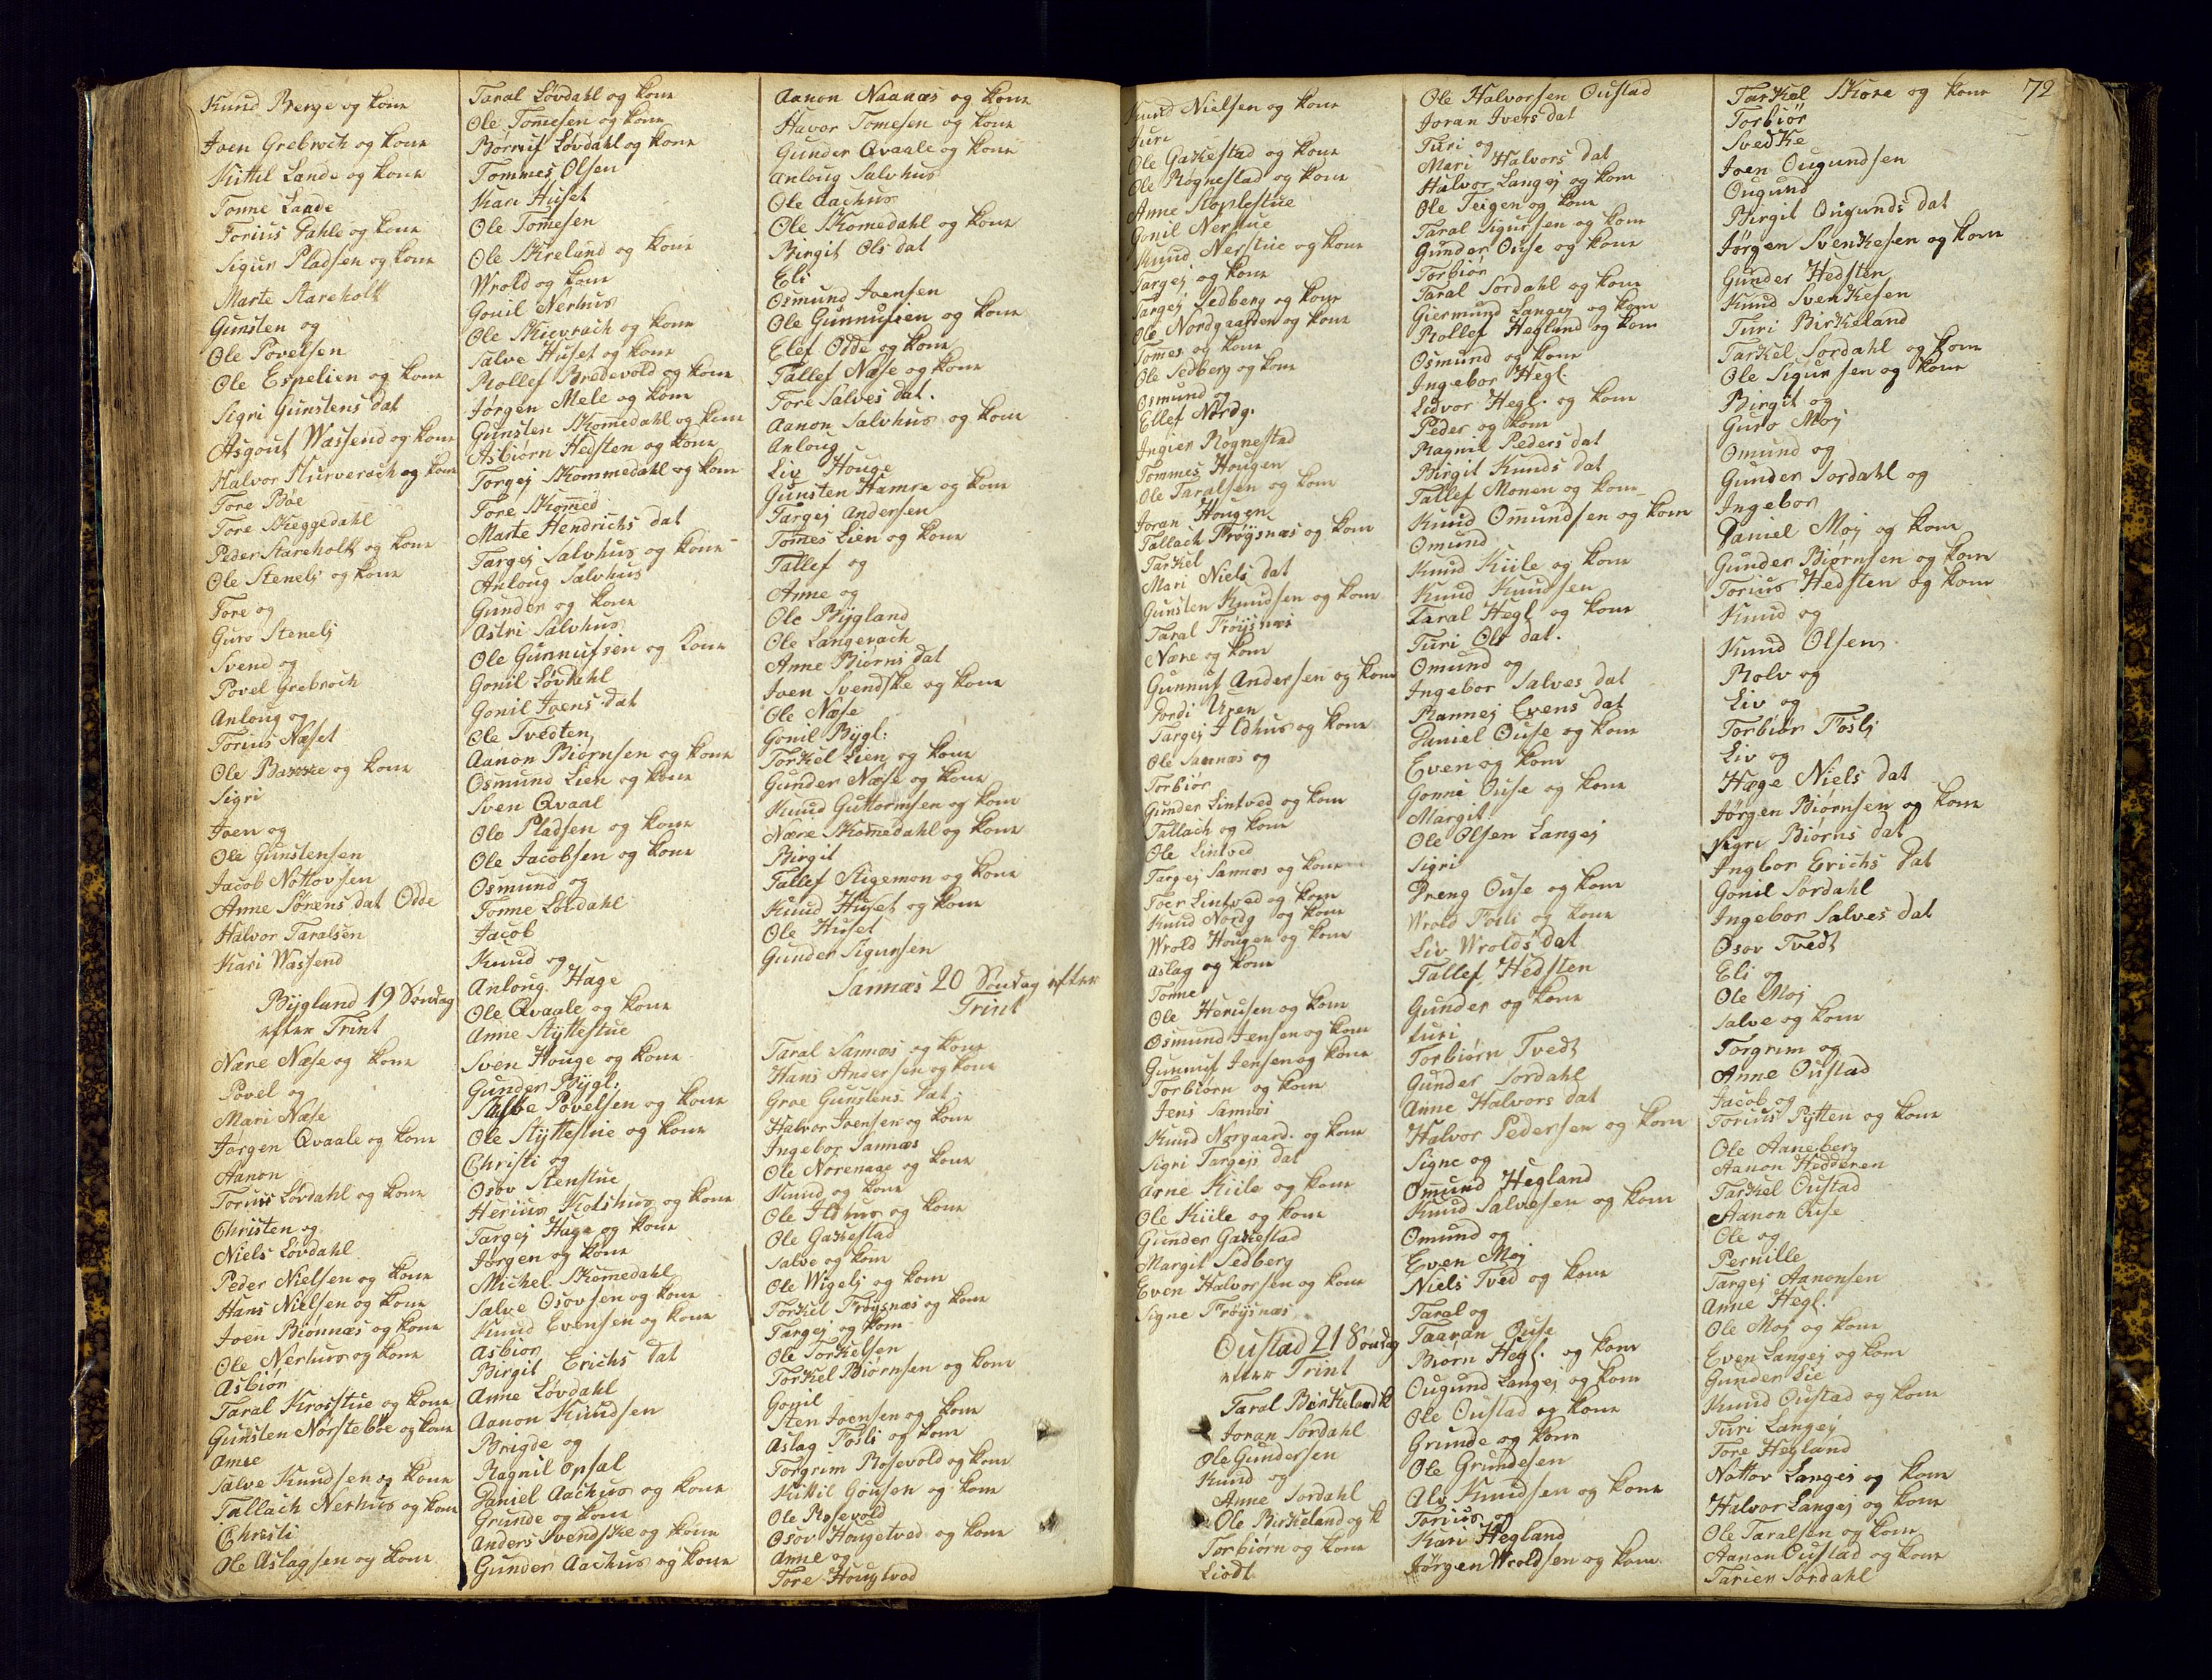 Knud Berge og kone
Joen Grebroch og kone
Kittil Lande og kone
Tonne Laade
Torius Dahle og kone
Sigur Pladsen og kone
Marte Stareholt
Gunsten og
Ole Povelsen
Ole Espelien og kone
Sigri Gunstens dat
Asgout Wassend og kone
Halvor Hurverach og kone
Tore Böe
Tore Skeggedahl
Peder Stareholt og kone
Ole Stenelj og kone
Tore og
Guro Stenelj
Svend og
Povel Grebroch
Anloug og
Torius Næset
Ole Bakke og kone
Sigri
Joen og
Ole Gunstensen
Jacob Nottovsen
Anne Sørens dat Odde
Halvor Taralsen
Kari Wassend
Bygland 19 Søndag
efter Trint
Nære Næse og kone
Povel og
Mari Næse
Jørgen Qvaale og kone
Aanon
Torius Løvdahl og kone
Christen og
Niels Løvdahl
Peder Nielsen og kone
Hans Nielsen og kone
Joen Biønnæs og kone
Ole Nerhus og kone
Asbiør
Taral Krosstue og kone
Gunsten Nørsteböe og kone
Amse
Salve Knudsen og kone
Tallach Nerhus og kone
Christi
Ole Aslagsen og kone
Taral Løvdahl og kone
Ole Tomesen og kone
Børruf Løvdahl og kone
Tommes Olsen
Kari Huset
Ole Tomesen
Ole Skreland og kone
Wrold og kone
Gonil Nerhus
Ole Skievrach og kone
Salve Huset og kone
Rollef Bredevold og kone
Jørgen Mele og kone
Gunsten Skomedahl og kone
Asbiørn Hedsten og kone
Torgej Skommedahl og kone
Tore Skomed
Marte Hendrichs dat
Targej Salvhus og kone
Anloug Salvhus
Gunder og kone
Astri Salvhus
Ole Gunnufsen og kone
Gonil Løvdahl
Gonil Joens dat
Ole Tvedten
Aanon Biørnsen og kone
Osmund Lien og kone
Sven Qvaal
Ole Pladsen og kone
Ole Jacobsen og kone
Osmund og
Tonne Løvdahl
Jacob
Knud og
Anloug Hage
Ole Qvaale og kone
Anne Stÿttestue
Sven Houge og kone
Gunder Bygl:
Povelsen og kone
Ole Stÿttestue og kone
Christi og
Osov Stenstue
Herius Kotshus og kone
Targej Hage og kone
Jørgen og kone
Michel Skomedahl
Salve Osovsen og kone
Knud Evensen og kone
Asbior
Birgit Erichs dat
Anne Løvdahl
Aanon Knudsen
Brigde og
Ragnil opsal
Daniel Aachus og kone
Grunde og kone
Anders Svendske og kone
Gunder Aachus og kone
Aanon Naanæs og kone
Havor Tomesen og kone
Gunder Qvaale og kone
Anloug Salvhus
Ole Aachus
Ole Skomedahl og kone
Birgit Ols dat
Eli
Osmund Joensen
Ole Gunnufsen og kone
Elef Odde og kone
Tallef Næse og kone
Tore Salves dat.
Aanon Salvhus og kone
Anloug
Liv Houge
Gunsten Hamre og kone
Targej Andersen
Tomes Lien og kone
Tallef og
Anne og
Ole Bÿgland
Ole Langerach
Anne Biørns dat
Joen Svendske og kone
Ole Næse
Gonil Bÿgl:
Torkel Lien og kone
Gunder Næse og kone
Knud Guttormsen og kone
Nære Skomedahl og kone
Birgit
Tallef Stigemon og kone
Knud Huset og kone
Ole Huset
Gunder Sigursen
Sannæs 20 Søndag efter
Trint
Taral Sannæs og kone
Hans Andersen og kone
Groe Gunstens dat
Halvor Joensen og kone
Ingebor Sannæs
Ole Norenaae og kone
Knud og kone
Ole Ildhus og kone
Ole Gakestad
Salve og kone
Ole Wigelj og kone
Torkil Frøysnæs og kone
Targej og kone
Ole Torkelsen
Torkel Biørnsen og kone
Gonil
Sten Joensen og kone
Aslag Fosli og kone
Torgrim Rosevold og kone
Kittil Gousen og kone
Ole Rosevold
Osov Hougetved og kone
Anne og
Tore Hougtvod
Knud Nielsen og kone
Turi
Ole Gakestad og kone
Ole Røgnestad og kone
Anne Stoplestue
Gonil Nerstue
Knud Nerstue og kone
Targej og kone
Targej Sedberg og kone
Ole Nordgaarden og kone
Tomes og kone
Ole Sedberg og kone
Osmund og
Ellef Nordg.
Ingier Røgnestad
Tommes Hougen
Ole Taralsen og kone
Joran Hougen
Tallach Frøysnæs og kone
Tarkel
Mari Niels dat
Gunsten Knudsen og kone
Taral Frøysnæs
Nære og kone
Gunnuf Andersen og kone
Dordi Uren
Targej Ildhus og kone
Ole Sannæs og
Torbiør
Gunder Lintved og kone
Tallach og kone
Ole Lintved
Targej Sannæs og kone
Toer Lintved og kone
Knud Nordg og kone
Wrold Hougen og kone
Aslag og kone
Tonne
Ole Heriusen og kone
Osmund Jensen og kone
Gunnuf Jensen og kone
Torbiørn og kone
Jens Sannæs
Knud Norgaard. og kone
Sigri Targejs dat
Arne Kiile og kone
Ole Kiile og kone
Gunder Gakestad
Margit Sedberg
Even Halvorsen og kone
Signe Frøysnæs
Oustad 21 Søndag
efter Trint
Taral Birkeland k
Joran Sordahl
Ole Gundersen
Knud og
Anne Sordahl
Ole Birkeland og k
Torbiørn og kone
Liodt
Ole Halvorsen Oustad
Joran Ivers dat
Turi og
Mari Halvors dat
Halvor Langej og kone
Ole Teigen og kone
Taral Sigursen og kone
Gunder Ouse og kone
Torbiør
Taral Sordahl og kone
Giermund Langej og kone
Rollef Hegland og kone
Osmund og kone
Ingebor Hegl.
Lidvor Hegl. og kone
Peder og kone
Ragnil Peders dat
Birgit Knuds dat
Tallef Monen og kone
Knud Omundsen og kone
Omund
Knud Kiile og kone
Knud Knudsen
Taral Hegl. og kone
Turi Ols dat.
Omund og
Ingebor Salves dat
Rannej Evens dat
Daniel Ouse og kone
Even og kone
Gonne Ouse og kone
Margit
Ole Olsen Langej
Sigri
Dreng Ouse og kone
Wrold Fosli og kone
Liv Wrolds dat
Tallef Hedsten
Gunder og kone
turi
Torbiørn Tvedt
Gunder Sordahl
Anne Halvors dat
Halvor Pedersen og kone
Signe og
Omund Hegland
Knud Salvesen og kone
Omund og
Even Moj
Niels Tved og kone
Taral og
Taaran Ouse
Biørn Hegl. og kone
Ougund Langej og kone
Ole Oustad og kone
Grunde og kone
Ole Grundesen
Alv Knudsen og kone
Torius og
Kari Hegland
Jørgen Wroldsen og kone
72
Tarkel Skore og kone
Torbiør
Svedke
Joen Ougundsen
Ougund
Birgit Ougunds dat
Jørgen Svenkesen og kone
Gunder Hedsten
Knud Svenkesen
Turi Birkeland
Tarkel Sordahl og kone
Ole Sigursen og kone
Birgit og
Guro Moj
Omund og
Gunder Sordahl og
Ingebor
Daniel Moj og kone
Gunder Biørnsen og kone
Torius Hedsten og kone
Knud og
Knud Olsen
Rolv og
Liv og
Torbiør Foslj
Liv og
Hæge Niels dat
Jørgen Biørnsen og kone
Sigri Biørns dat
Ingbor Erichs dat
Gonil Sordahl
Ingebor Salves dat
Osov Tvedt
Eli og
Ole Moj
Salve og kone
Torgrim og
Anne Oustad
Jacob og
Torius Pÿtten og kone
Ole Aaneberg
Aanon Hedderen
Tarkel Oustad
Aanon Ouse
Ole og
Pernille
Targej Aanonsen
Anne Hegl.
Ole Moj og kone
Even Langej og kone
Gunder Lie
Knud Oustad og kone
Turi Langej
Tore Hegland
Nottov Langej og kone
Halvor Langej og kone
Ole Taralsen og kone
Aanon Oustad og kone
Tarier Sordahl